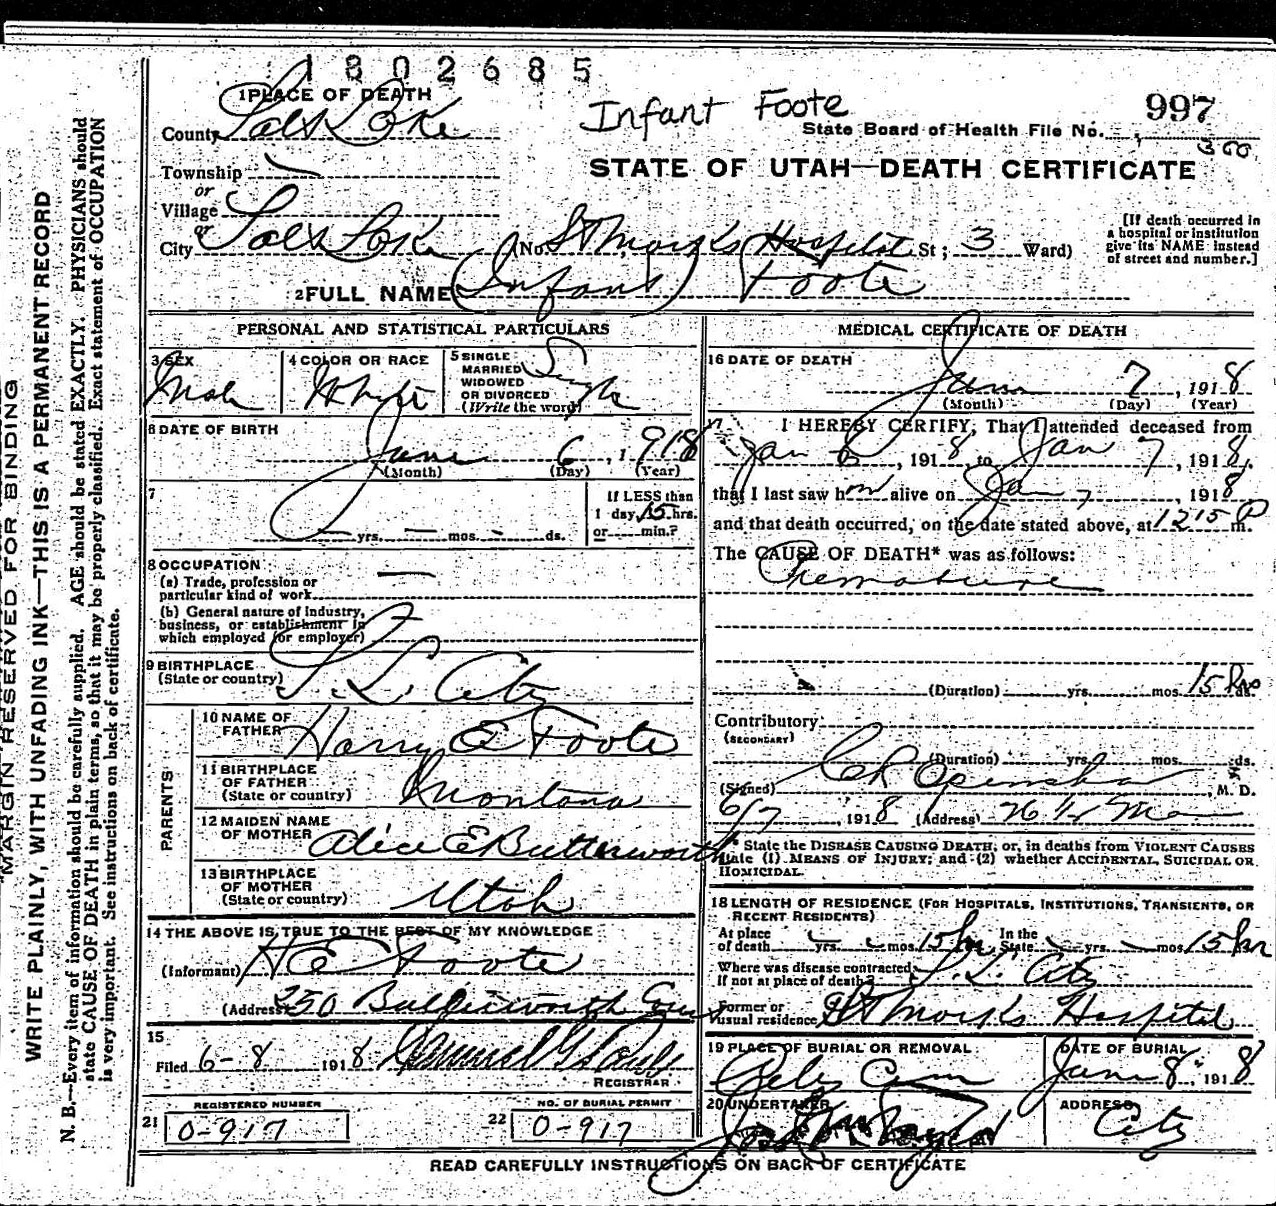 1802685
1 PLACE OF DEATH
County Salt Lake
Infant Foote
997
State Board of Health File No.
Township
STATE OF UTAH—DEATH CERTIFICATE
or
Village
or
City Salt Lake (No. St Marks Hospital St; 3 Ward)
[If death occurred in a hospital or institution give its NAME instead of street and number.]
2 FULL NAME (Infant) Foote
PERSONAL AND STATISTICAL PARTICULARS
3 SEX Male
4 COLOR OR RACE White
5 SINGLE MARRIED WIDOWED OR DIVORCED (Write the word) Single
6 DATE OF BIRTH
June 6, 1918
(Month) (Day) (Year)
7
If LESS than
1 day, 15 hrs.
yrs. mos. ds. or min.?
8 OCCUPATION
(a) Trade, profession or
particular kind of work
(b) General nature of industry,
business, or establishment in
which employed (or employer)
9 BIRTHPLACE
(State or country) S. L. City
PARENTS
10 NAME OF
FATHER Harry E Foote
11 BIRTHPLACE
OF FATHER
(State or country) Montana
12 MAIDEN NAME
OF MOTHER Alice E Butterworth
13 BIRTHPLACE
OF MOTHER
(State or country) Utah
14 THE ABOVE IS TRUE TO THE BEST OF MY KNOWLEDGE
(Informant) H E Foote
(Address) 250
15
Filed 6-8 1918 Samuel G Paul
REGISTRAR
REGISTERED NUMBER
21 0-917
NO. OF BURIAL PERMIT
22 0-917
MEDICAL CERTIFICATE OF DEATH
16 DATE OF DEATH
June 7, 1918
(Month) (Day) (Year)
I HEREBY CERTIFY, That I attended deceased from
Jan 6, 1918, to Jan 7, 1918,
that I last saw him alive on Jan 7, 1918
and that death occurred, on the date stated above, at 1215 P m.
The CAUSE OF DEATH* was as follows:
Premature
(Duration) yrs. mos. 15 hrs ds.
Contributory
(SECONDARY)
(Duration) yrs. mos. ds.
(Signed) C R Openshaw, M. D.
6/7, 1918 (Address)
* State the DISEASE CAUSING DEATH; or, in deaths from VIOLENT CAUSES
state (1) MEANS OF INJURY; and (2) whether ACCIDENTAL, SUICIDAL OR
HOMICIDAL.
18 LENGTH OF RESIDENCE (FOR HOSPITALS, INSTITUTIONS, TRANSIENTS, OR
RECENT RESIDENTS)
At place of death yrs. mos. 15 hrs In the State yrs. mos. 15 hrs
Where was disease contracted,
if not at place of death? S. L. City
Former or
usual residence St Marks Hospital
19 PLACE OF BURIAL OR REMOVAL
City Cem
DATE OF BURIAL
June 8, 1918
20 UNDERTAKER
ADDRESS
City
READ CAREFULLY INSTRUCTIONS ON BACK OF CERTIFICATE
MARGIN RESERVED FOR BINDING
WRITE PLAINLY, WITH UNFADING INK—THIS IS A PERMANENT RECORD
N. B.—Every item of information should be carefully supplied. AGE should be stated EXACTLY. PHYSICIANS should
state CAUSE OF DEATH in plain terms, so that it may be properly classified. Exact statement of OCCUPATION
is very important. See instructions on back of certificate.